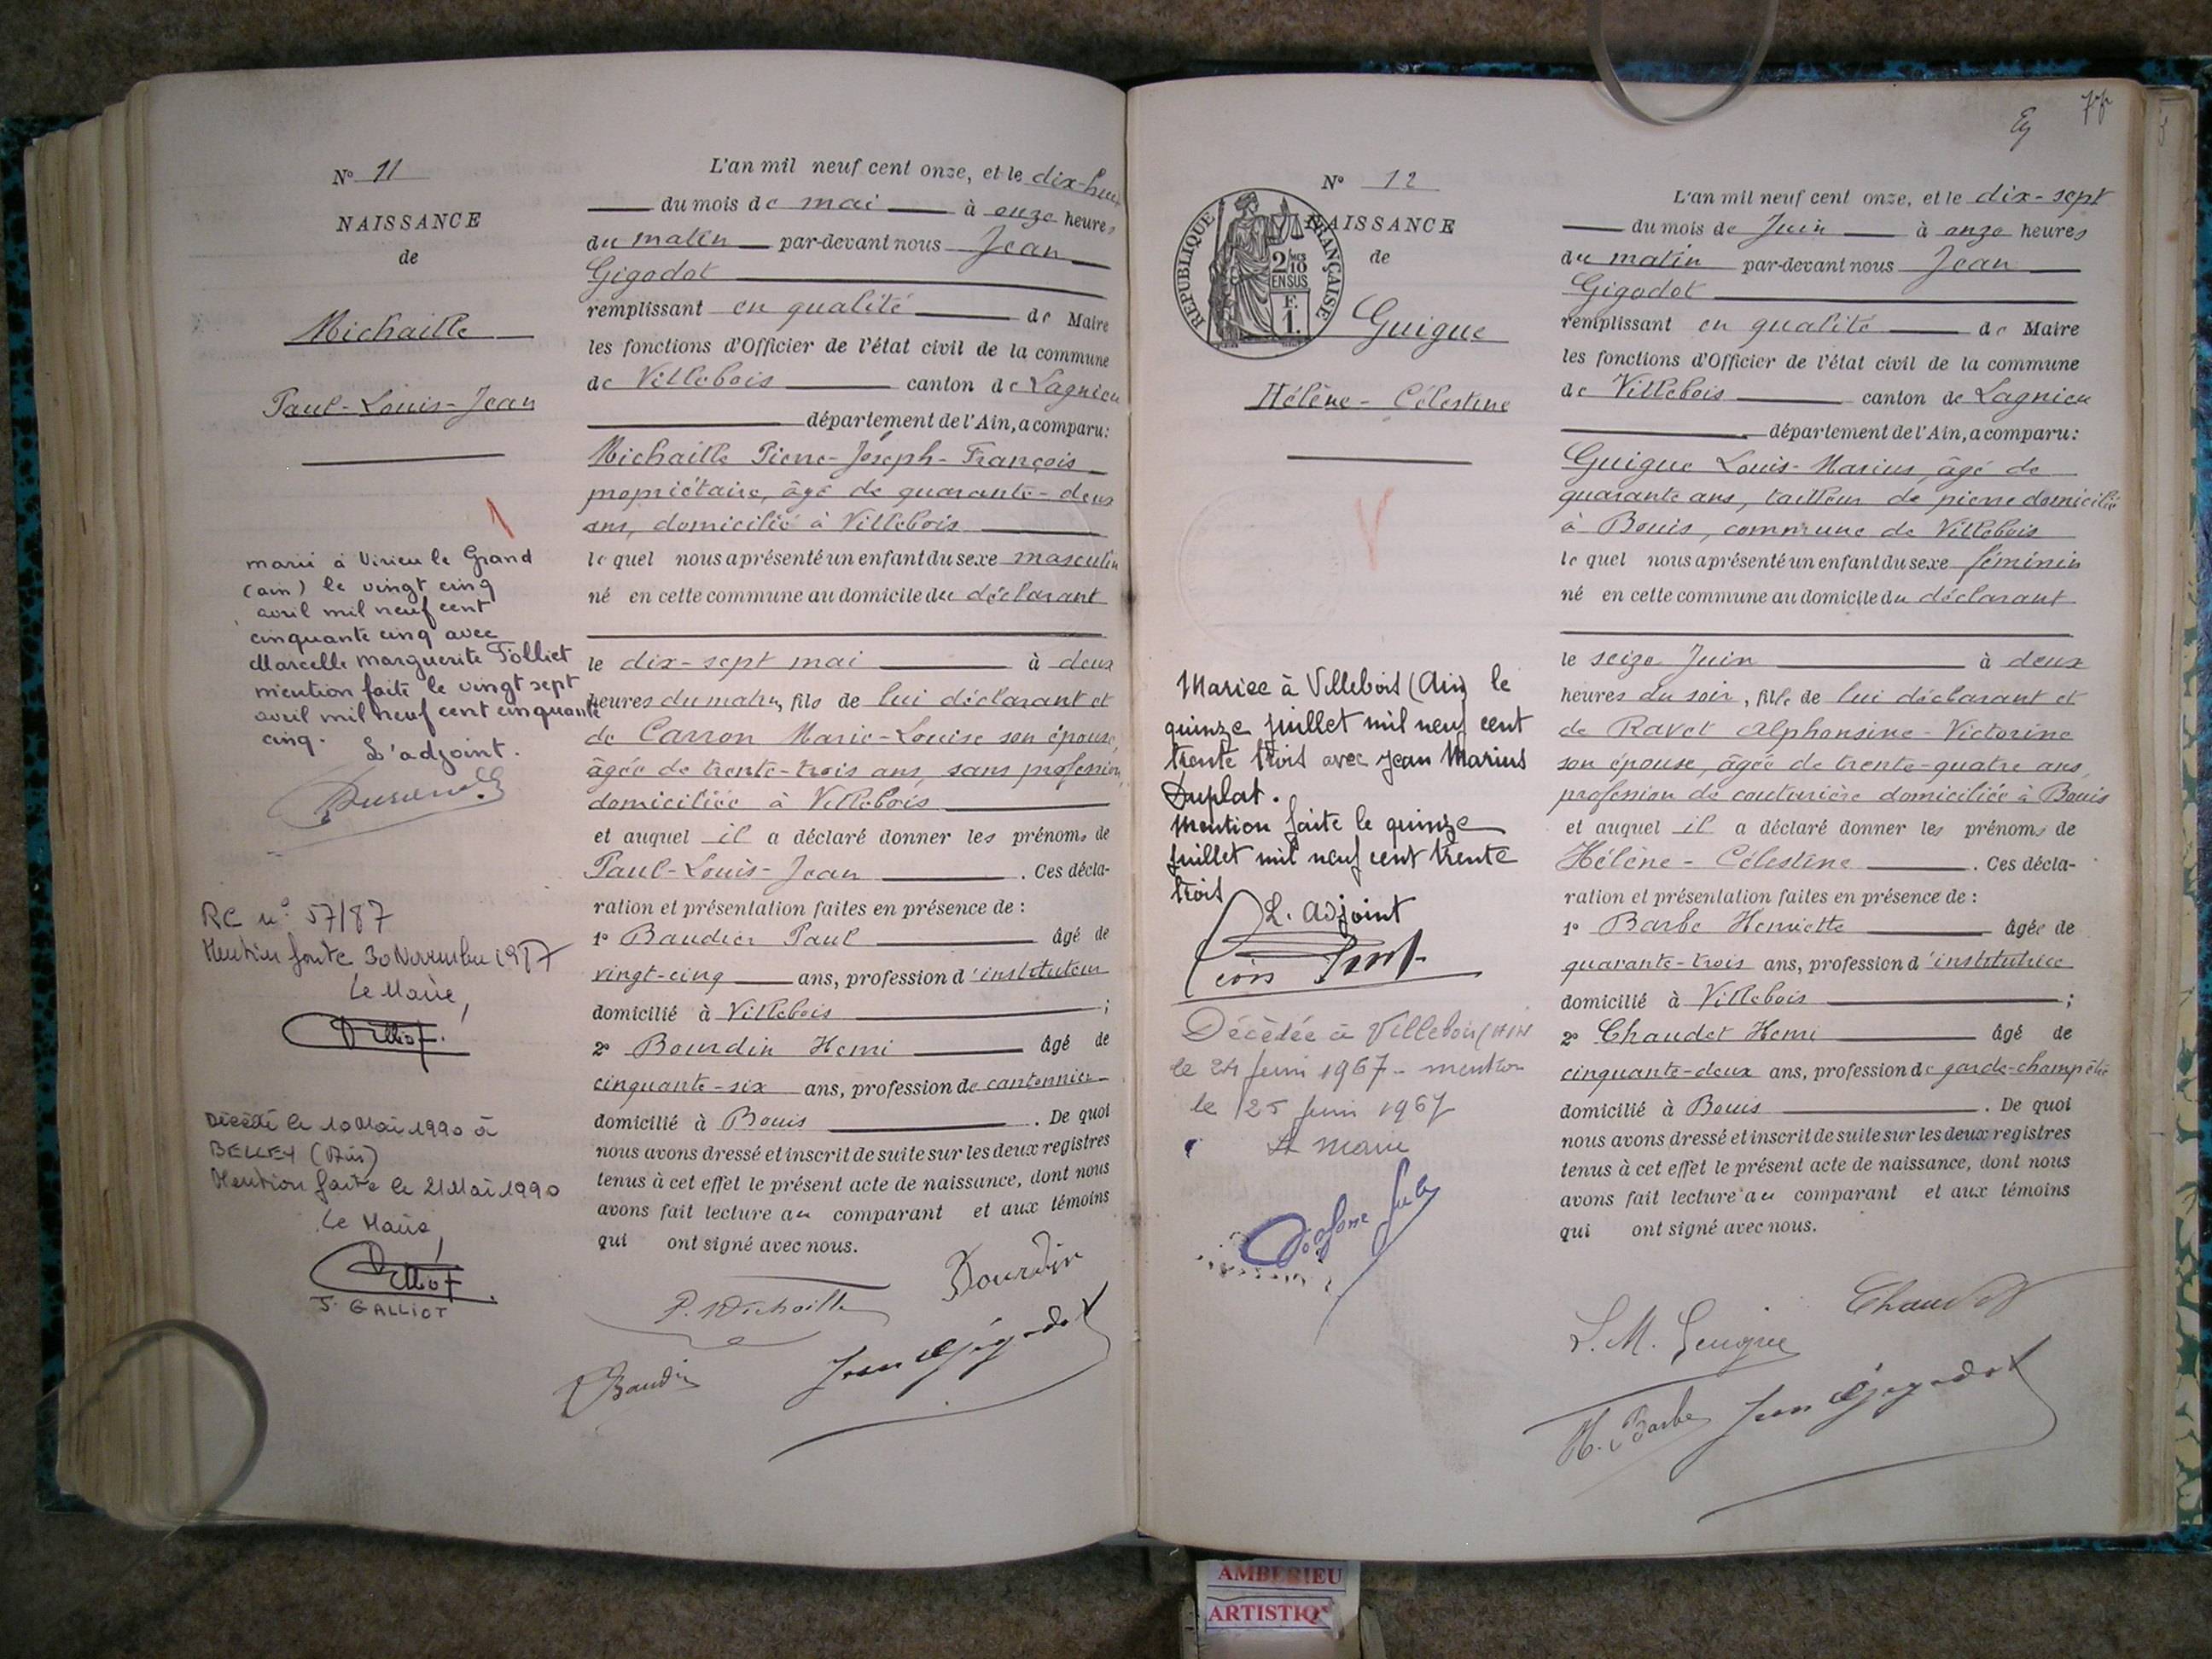 N° 11
NAISSANCE
de
Michaille
Paul-Louis-Jean
marié à Virieu le Grand
(ain) le vingt cinq
avril mil neuf cent
cinquante cinq avec
Marcelle Marguerite Tolliet
mention faite le vingt sept
avril mil neuf cent cinquante
cinq.
L'adjoint.
RC n° 57/87
Mention faite 30 Novembre 1987
Le Maire,
Décédé le 10 Mai 1990 à
BELLEY (Ain)
Mention faite le 21 Mai 1990
Le Maire,
J. GALLIOT
L'an mil neuf cent onze, et le dix-huit
du mois de mai à onze heures
du matin par-devant nous Jean
Gigodot
remplissant en qualité de Maire
les fonctions d'Officier de l'état civil de la commune
de Villebois canton de Lagnieu
département de l'Ain, a comparu:
Michaille Pierre-Joseph-François
propriétaire, âgé de quarante-deux
ans, domicilié à Villebois
lequel nous a présenté un enfant du sexe masculin
né en cette commune au domicile du déclarant
le dix-sept mai à deux
heures du matin, fils de lui déclarant et
de Carron Marie-Louise son épouse,
âgée de trente-trois ans, sans profession,
domiciliée à Villebois
et auquel il a déclaré donner les prénoms de
Paul-Louis-Jean . Ces décla-
ration et présentation faites en présence de :
1° Baudier Paul âgé de
vingt-cinq ans, profession d'instituteur
domicilié à Villebois ;
2° Bourdin Henri âgé de
cinquante-six ans, profession de cantonnier
domicilié à Bouis . De quoi
nous avons dressé et inscrit de suite sur les deux registres
tenus à cet effet le présent acte de naissance, dont nous
avons fait lecture au comparant et aux témoins
qui ont signé avec nous.
Bourdin
P. Michaille
Jean Gigodot
N° 12
NAISSANCE
de
REPUBLIQUE FRANÇAISE
2/10 EN SUS
F. 1.
Guigue
Hélène-Célestine
Mariée à Villebois (Ain) le
quinze juillet mil neuf cent
trente trois avec Jean Marius
Duplat.
Mention faite le quinze
juillet mil neuf cent trente
trois
L. Adjoint
Décédée à Villebois (AIN
le 24 juin 1967 - mention
le 25 juin 1967
Le Maire
L'an mil neuf cent onze, et le dix-sept
du mois de Juin à onze heures
du matin par-devant nous Jean
Gigodot
remplissant en qualité de Maire
les fonctions d'Officier de l'état civil de la commune
de Villebois canton de Lagnieu
département de l'Ain, a comparu:
Guigue Louis-Marius, âgé de
quarante ans, tailleur de pierre domicilié
à Bouis, commune de Villebois
lequel nous a présenté un enfant du sexe féminin
né en cette commune au domicile du déclarant
le seize Juin à deux
heures du soir, fille de lui déclarant et
de Ravet Alphonsine-Victorine
son épouse, âgée de trente-quatre ans,
profession de couturière domiciliée à Bouis
et auquel il a déclaré donner les prénoms de
Hélène-Célestine . Ces décla-
ration et présentation faites en présence de :
1° Barbe Henriette âgée de
quarante-trois ans, profession d'institutrice
domicilié à Villebois ;
2° Chaudet Henri âgé de
cinquante-deux ans, profession de garde-champêtre
domicilié à Bouis . De quoi
nous avons dressé et inscrit de suite sur les deux registres
tenus à cet effet le présent acte de naissance, dont nous
avons fait lecture au comparant et aux témoins
qui ont signé avec nous.
Chaudet
L. M. Guigue
H. Barbe Jean Gigodot
AMBERIEU
ARTISTIQ